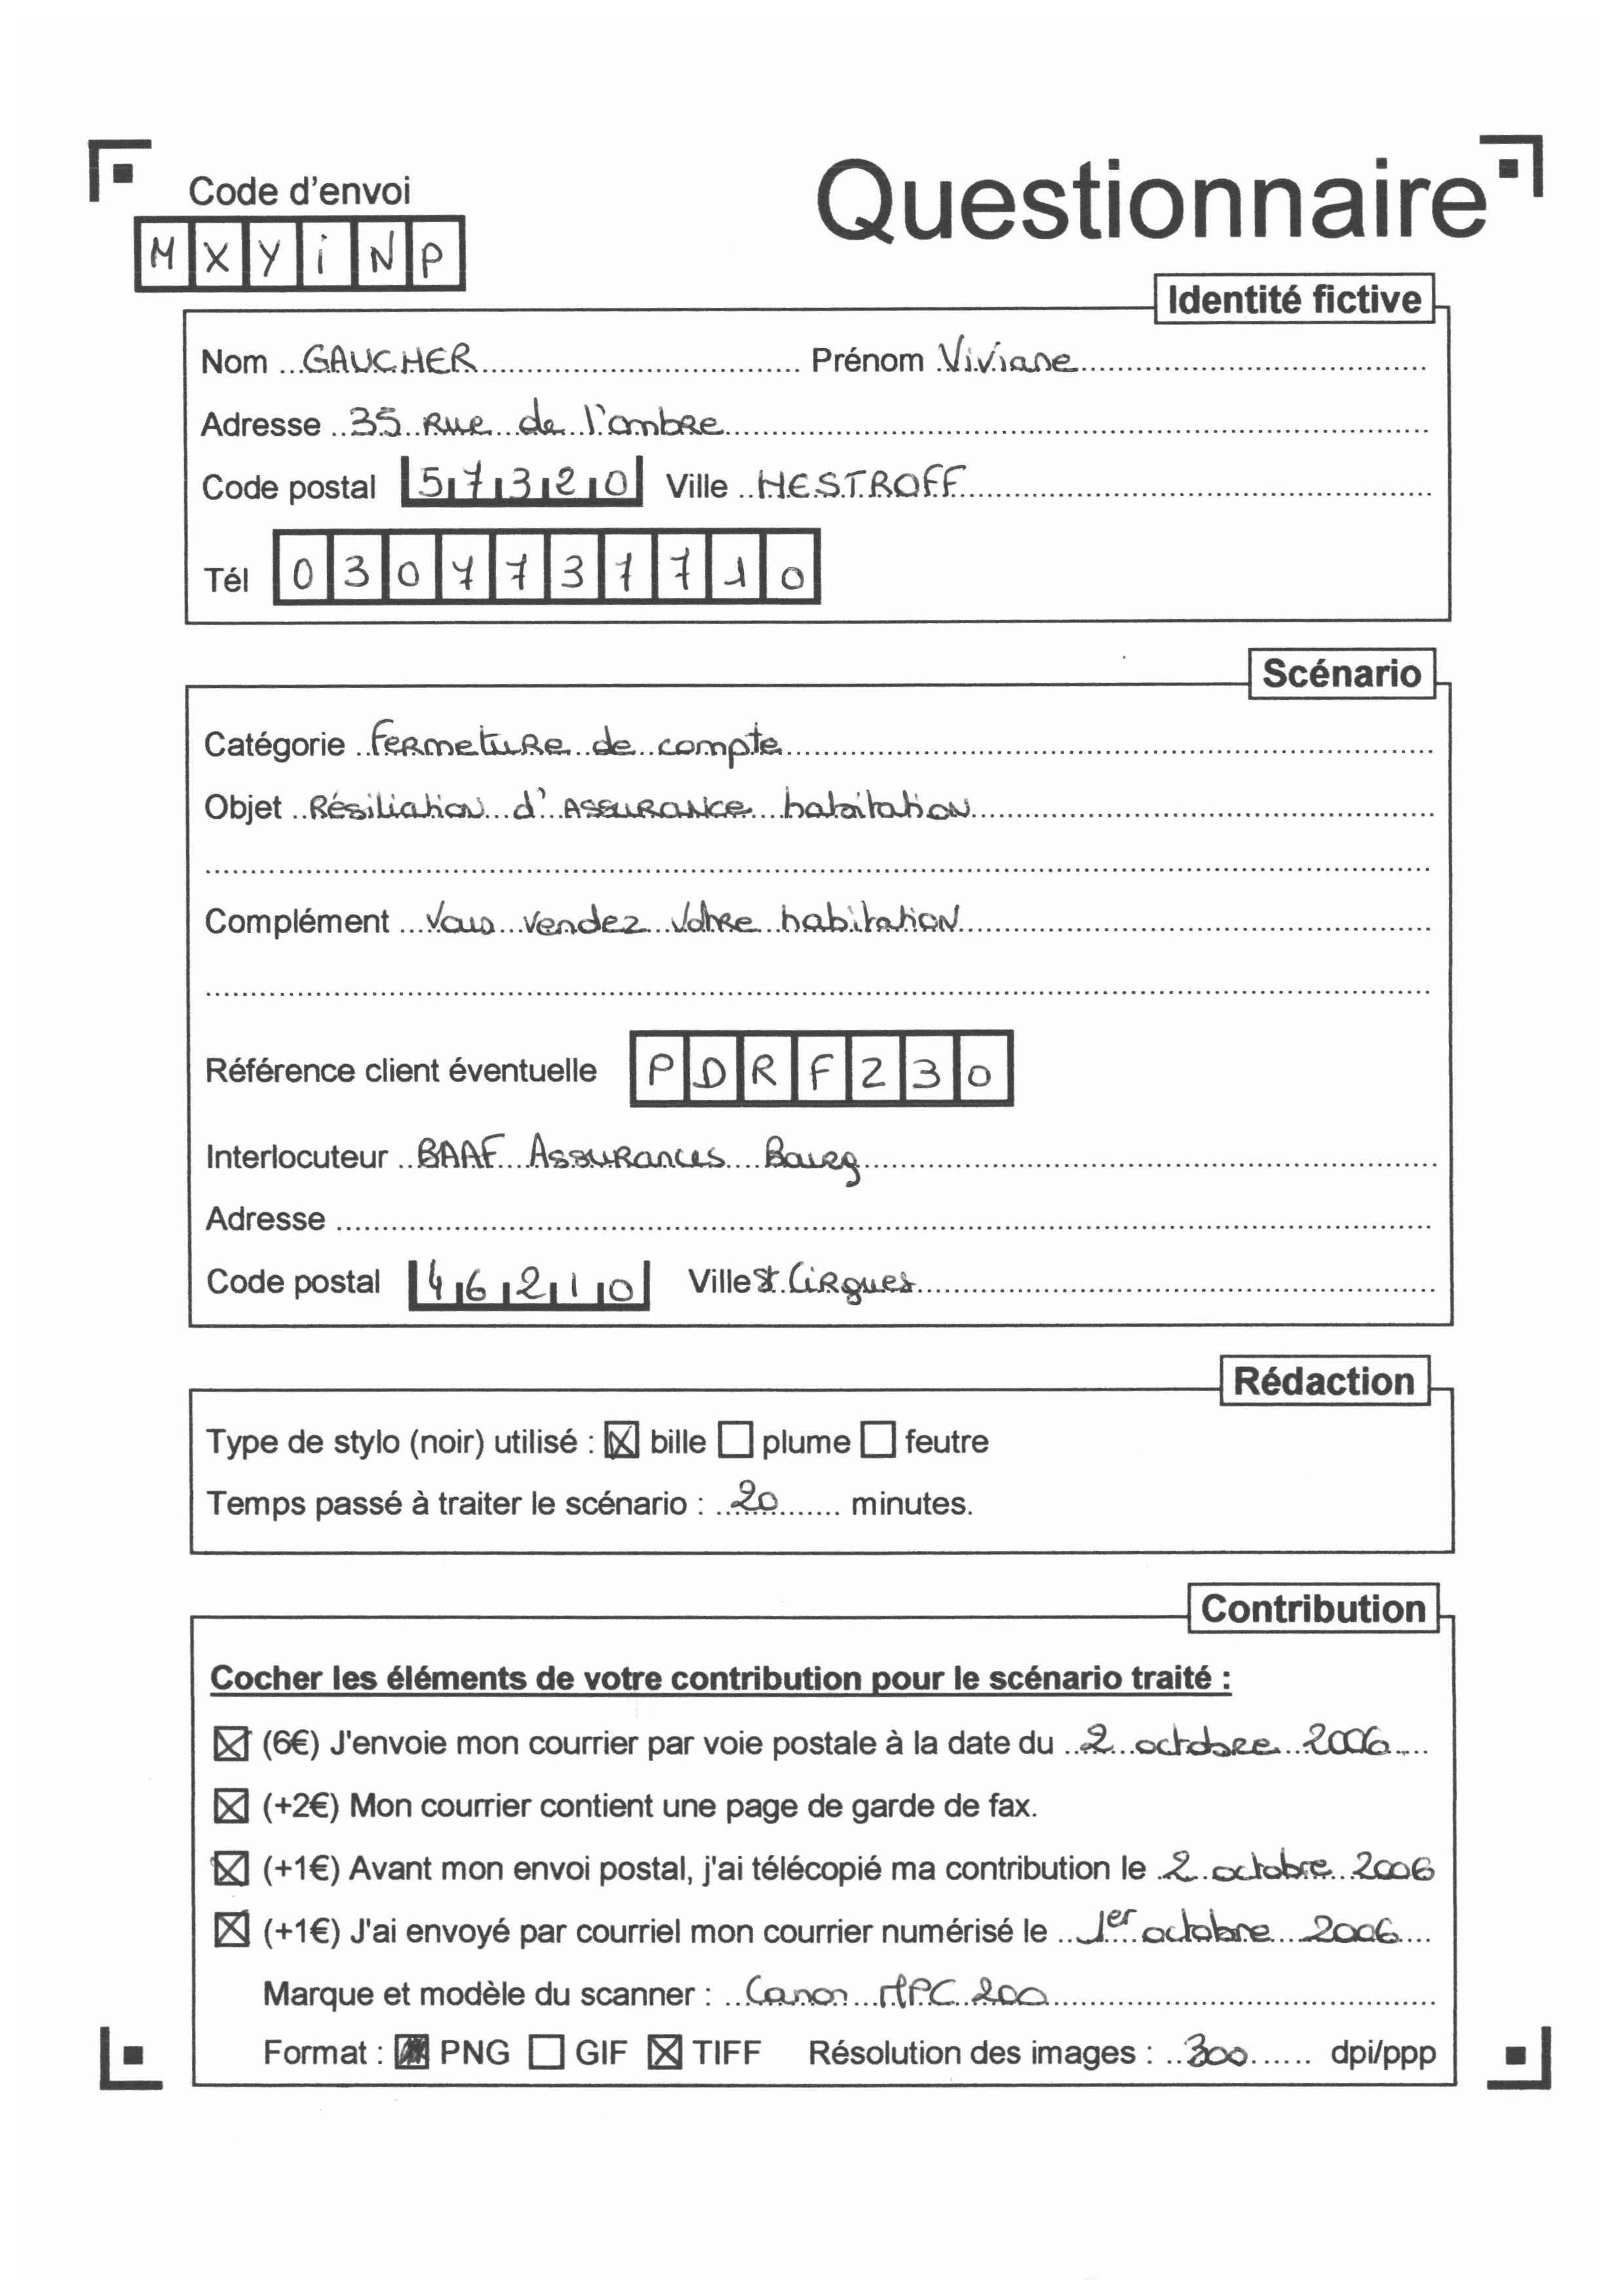 Questionnaire
Code d'envoi
MXYiNP
Identité fictive
Nom GAUCHER Prénom Viviane
Adresse 35 Rue de l'ombre
Code postal 57320 Ville HESTROFF
Tél 03077377710
Scénario
Catégorie Fermeture de compte
Objet Résiliation d'Assurance habitation
Complément Vous vendez votre habitation
Référence client éventuelle PDRF230
Interlocuteur BAAF Assurances Bourg
Adresse
Code postal 46210 Ville St Cirgues
Rédaction
Type de stylo (noir) utilisé : ☒ bille ☐ plume ☐ feutre
Temps passé à traiter le scénario : 20 minutes.
Contribution
Cocher les éléments de votre contribution pour le scénario traité :
☒ (6€) J'envoie mon courrier par voie postale à la date du 2 octobre 2006
☒ (+2€) Mon courrier contient une page de garde de fax.
☒ (+1€) Avant mon envoi postal, j'ai télécopié ma contribution le 2 octobre 2006
☒ (+1€) J'ai envoyé par courriel mon courrier numérisé le 1er octobre 2006
Marque et modèle du scanner : Canon MPC 200
Format : PNG ☐ GIF ☒ TIFF Résolution des images : 300 dpi/ppp